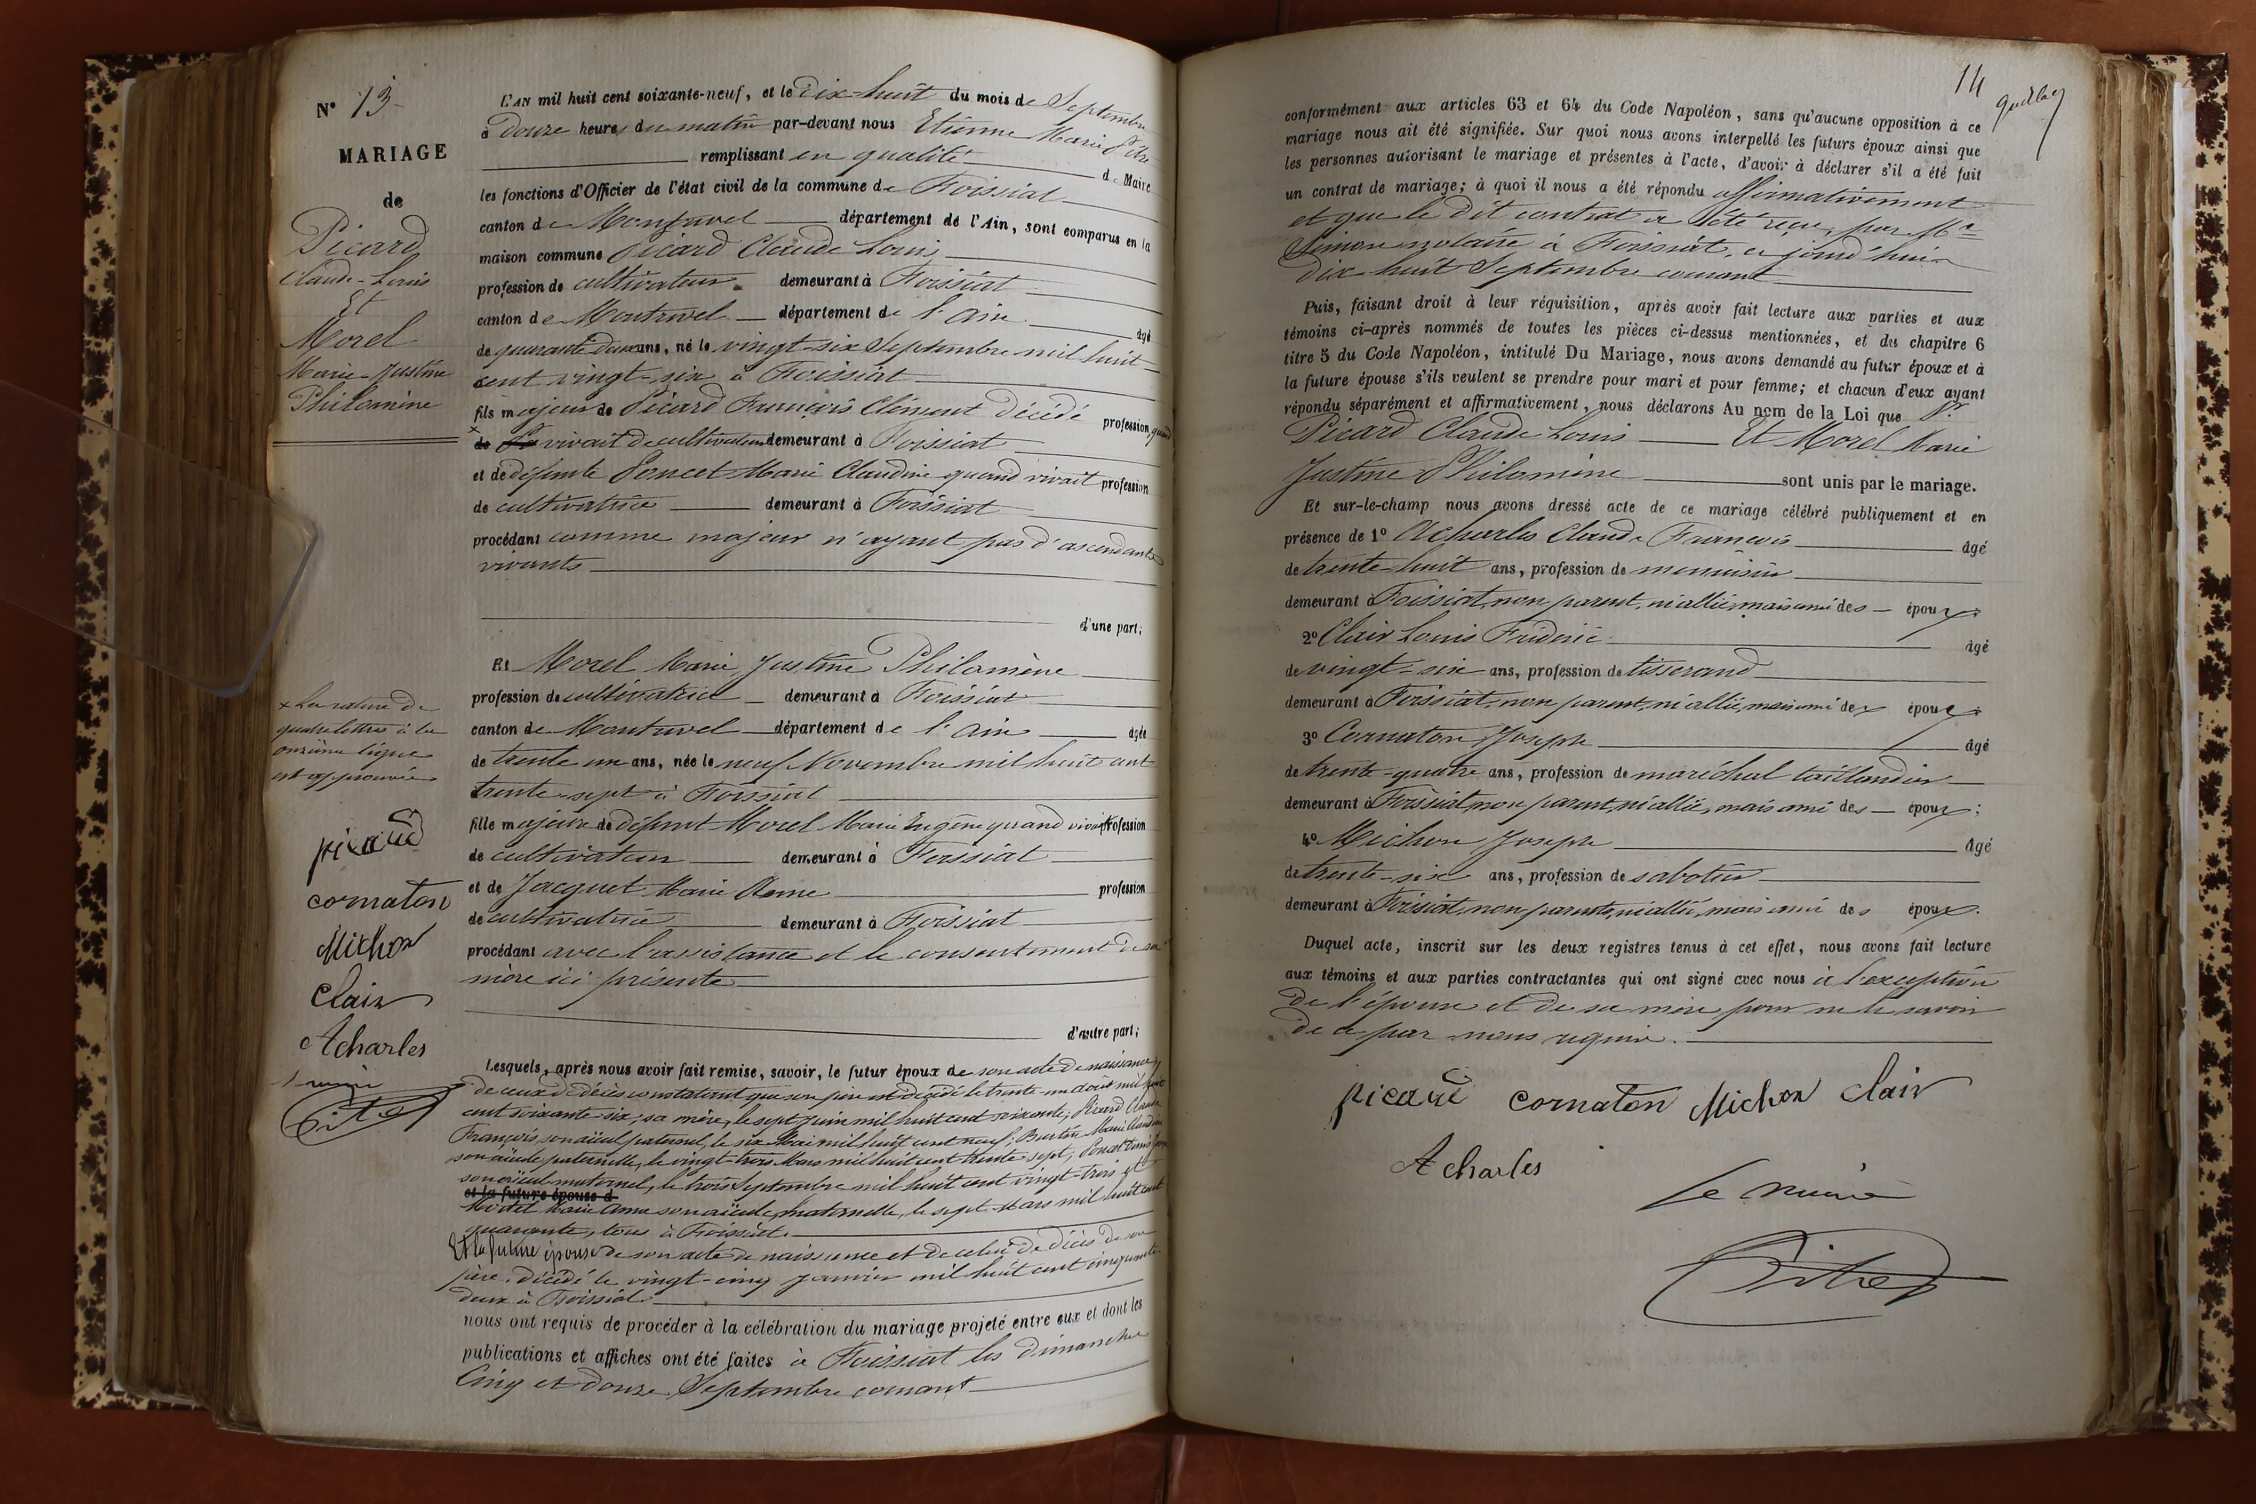 N° 13
MARIAGE
de
Picard
Claude-Louis
Et
Morel
Marie-Justine
Philomène
L'AN mil huit cent soixante-neuf, et le dix-huit du mois de Septembre
à douze heures du matin par-devant nous Etienne Marie Pitre
remplissant en qualité de Maire
les fonctions d'Officier de l'état civil de la commune de Foissiat
canton de Montrevel département de l'Ain, sont comparus en la
maison commune Picard Claude Louis
profession de cultivateur demeurant à Foissiat
canton de Montrevel département de l'Ain âgé
de quarante deux ans, né le vingt-six Septembre mil huit
cent vingt-six à Foissiat
fils majeur de Picard François Clément décédé profession quand
vivait de cultivateur demeurant à Foissiat
et de défunte Poncet Marie Claudine quand vivait profession
de cultivatrice demeurant à Foissiat
procédant comme majeur n'ayant pas d'ascendants
vivants
d'une part;
Et Morel Marie Justine Philomène
profession de cultivatrice demeurant à Foissiat
canton de Montrevel département de l'Ain âgée
de trente un ans, née le neuf Novembre mil huit cent
trente-sept à Foissiat
fille majeure de défunt Morel Marie Eugène quand vivait profession
de cultivateur demeurant à Foissiat
et de Jacquet Marie Anne profession
de cultivatrice demeurant à Foissiat
procédant avec l'assistance et le consentement de sa
mère ici présente
d'autre part;
x La rature de
quatre lettres à la
onzième ligne
est approuvée
picard
cornaton
Michon
Clair
Acharles
Le maire
Pitre
Lesquels, après nous avoir fait remise, savoir, le futur époux de son acte de naissance,
de ceux de décès constatant que son père est décédé le trente-un août mil huit
cent soixante-six; sa mère, le sept juin mil huit cent soixante; Picard Claude
François, son aïeul paternel, le six Mai mil huit cent neuf; Burtin Marie Claudine
son aïeule paternelle, le vingt-trois Mars mil huit cent trente sept; Poncet Denis
son aïeul maternel, le trois Septembre mil huit cent vingt-trois et
et la future épouse d
Marie Anne son aïeule maternelle, le sept Mars mil huit cent
quarante, tous à Foissiat.
Et la future épouse de son acte de naissance et de celui de décès de son
père, décédé le vingt-cinq janvier mil huit cent cinquante
deux à Foissiat
nous ont requis de procéder à la célébration du mariage projeté entre eux et dont les
publications et affiches ont été faites à Foissiat les dimanches
Cinq et douze Septembre courant
14
conformément aux articles 63 et 64 du Code Napoléon, sans qu'aucune opposition à ce
mariage nous ait été signifiée. Sur quoi nous avons interpellé les futurs époux ainsi que
les personnes autorisant le mariage et présentes à l'acte, d'avoir à déclarer s'il a été fait
un contrat de mariage; à quoi il nous a été répondu affirmativement
et que le dit contrat a été reçu par Me
Simon notaire à Foissiat, ce jourd'hui
dix huit Septembre courant
Puis, faisant droit à leur réquisition, après avoir fait lecture aux parties et aux
témoins ci-après nommés de toutes les pièces ci-dessus mentionnées, et du chapitre 6
titre 5 du Code Napoléon, intitulé Du Mariage, nous avons demandé au futur époux et à
la future épouse s'ils veulent se prendre pour mari et pour femme; et chacun d'eux ayant
répondu séparément et affirmativement, nous déclarons Au nom de la Loi que
Picard Claude Louis Et Morel Marie
Justine Philomène sont unis par le mariage.
Et sur-le-champ nous avons dressé acte de ce mariage célébré publiquement et en
présence de 1° Acharles Claude François âgé
de trente-huit ans, profession de menuisier
demeurant à Foissiat, non parent, ni allié, mais ami des époux;
2° Clair Louis Fridéric âgé
de vingt-six ans, profession de tisserand
demeurant à Foissiat, non parent, ni allié, mais ami des époux;
3° Cornaton Joseph âgé
de trente-quatre ans, profession de maréchal taillandier
demeurant à Foissiat, non parent, ni allié, mais ami des époux;
4° Michon Joseph âgé
de trente-six ans, profession de sabotier
demeurant à Foissiat, non parent, ni allié, mais ami des époux.
Duquel acte, inscrit sur les deux registres tenus à cet effet, nous avons fait lecture
aux témoins et aux parties contractantes qui ont signé avec nous à l'exception
de l'épouse et de sa mère pour ne le savoir
de ce par nous requise.
picard cornaton Michon Clair
Acharles
Le maire
Pitre